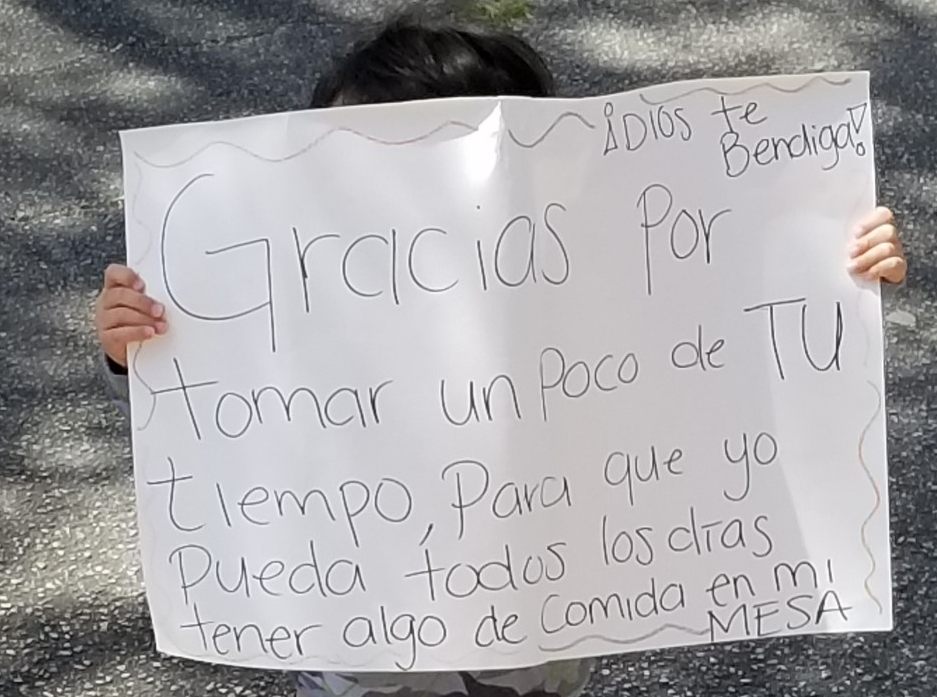 ¡DIOS te
Bendiga!
Gracias Por
tomar un Poco de TU
tiempo, Para que yo
Pueda todos los días
tener algo de comida en mi
MESA